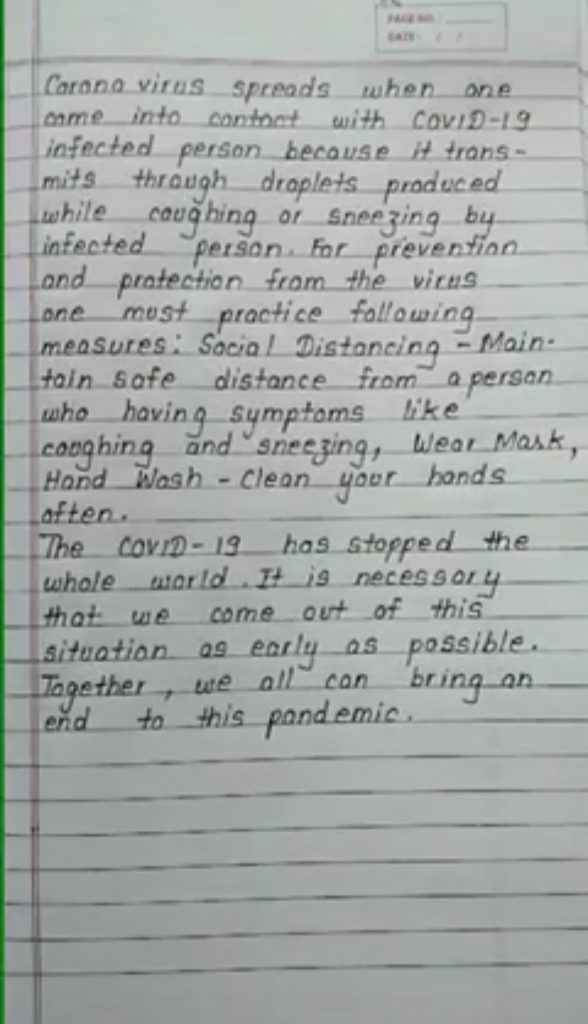 PAGE NO.:
DATE: / /
Corona virus spreads when one
come into contact with COVID-19
infected person because it trans-
mits through droplets produced
while coughing or sneezing by
infected person. For prevention
and protection from the virus
one must practice following
measures: Social Distancing - Main-
tain safe distance from a person
who having symptoms like
coughing and sneezing, Wear Mask,
Hand Wash - Clean your hands
often.
The COVID-19 has stopped the
whole world. It is necessary
that we come out of this
situation as early as possible.
Together, we all can bring an
end to this pandemic.